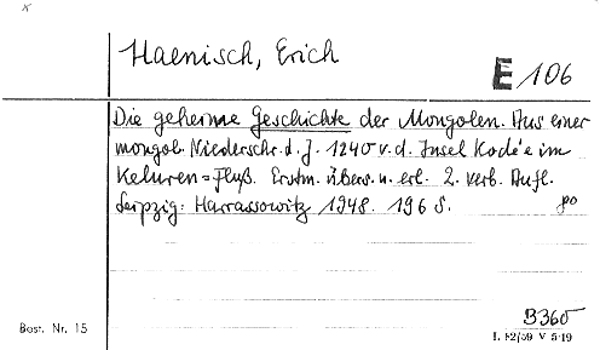 Haenisch, Erich
E 106
Die geheime Geschichte der Mongolen. Aus einer
mongol. Niederschr. d. J. 1240 v. d. Insel Kode'e im
Keluren=Fluß. Erstm. übers. u. erl. 2. verb. Aufl.
Leipzig: Harrassowitz 1948. 196 S.
B360
Best. Nr. 15
I. 52/59 V 5-19